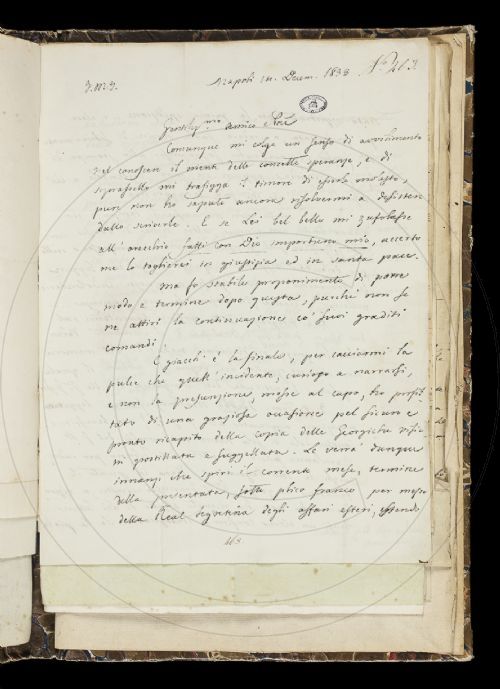 J.M.J.
Napoli 14. Decem. 1833
N.° 463.
Gentilis.mo Amico e Pne
Comunque mi colga un senso di avvilimento
nel conoscere il niente delle concette speranze, e di
soprassello mi trafigga il timore di esserle molesto,
pure non ho saputo ancora risolvermi a desistere
dallo scriverle. E se Lei bel bello mi zufolasse
all'orecchio fatti con Dio importuno mio, accerto
me lo toglierei in giustizia ed in santa pace.
Ma fo stabile proponimento di porre
modo e termine dopo questa, purché non se
ne attiri la continuazione co' suoi graditi
comandi.
E giacché è la finale, per cacciarmi la
pulce che quell'incidente, curioso a narrarsi,
e non la presunzione, mosse al capo, ho profit
tato di una graziosa occasione pel sicuro e
pronto ricapito della copia delle Georgiche
postillata e suggellata. Le verrà dunque
innanzi che spiri il corrente mese, termine
della sotto plico franco per mezzo
della Real Segreteria degli affari esteri, essendo
463